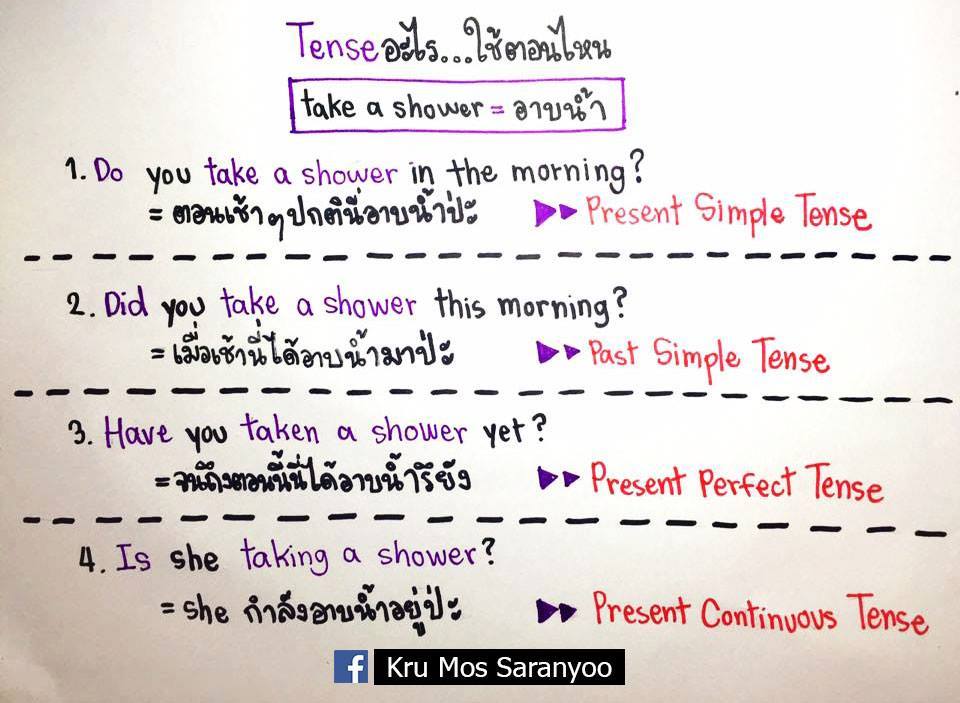 Tense อะไร...ใช้ตอนไหน
take a shower = อาบน้ำ
1. Do you take a shower in the morning?
= ตอนเช้าๆปกตินี่อาบน้ำป่ะ ▶▶ Present Simple Tense
2. Did you take a shower this morning?
= เมื่อเช้านี่ได้อาบน้ำมาป่ะ ▶▶ Past Simple Tense
3. Have you taken a shower yet?
= จนถึงตอนนี้นี่ได้อาบน้ำรึยัง ▶▶ Present Perfect Tense
4. Is she taking a shower?
= she กำลังอาบน้ำอยู่ป่ะ ▶▶ Present Continuous Tense
f Kru Mos Saranyoo